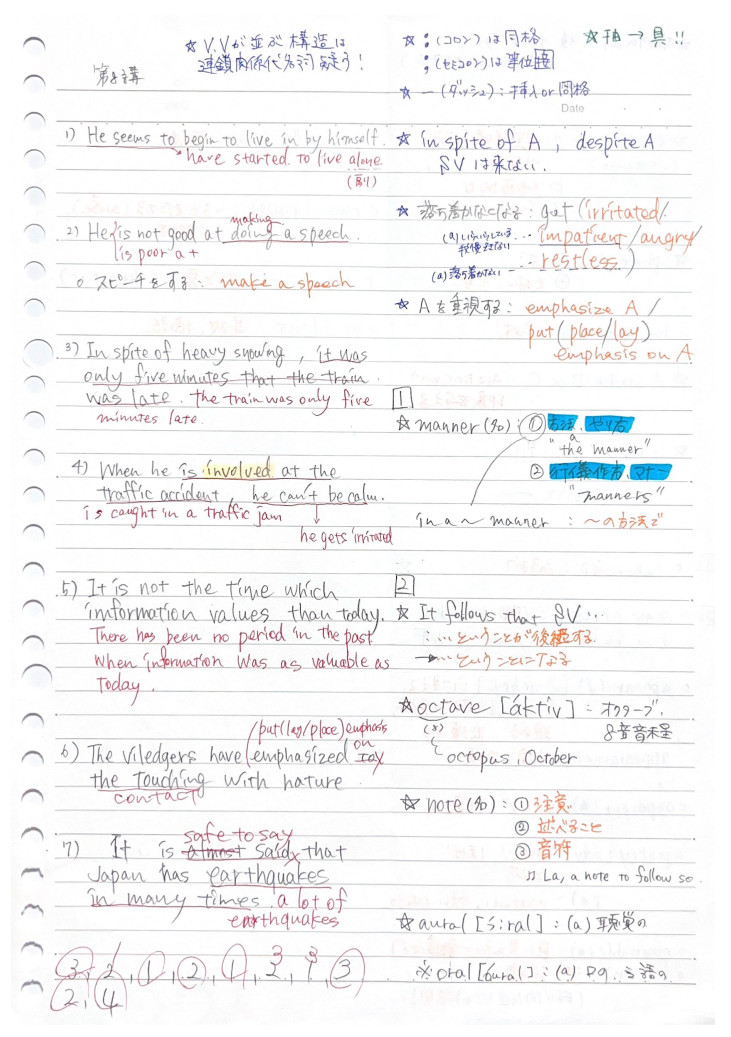 ☆ V.Vが並ぶ構造は
連鎖関係代名詞疑う！
第8講
1) He seems to begin to live in by himself.
have started to live alone
(副)
2) He is not good at doing a speech.
making
is poor at
○ スピーチをする: make a speech
3) In spite of heavy snowing, it was
only five minutes that the train
was late. the train was only five
minutes late.
4) When he is involved at the
traffic accident, he can't be calm.
is caught in a traffic jam
he gets irritated
5) It is not the time which
imformation values than today.
There has been no period in the past
when information was as valuable as
today.
put(lay/place) emphasis
on
6) The viledgers have emphasized
the touching with nature.
contact
safe to say
7) It is almost said that
Japan has earthquakes
in many times. a lot of
earthquakes
3, 2, 1, 2, 1, 2, 1, 3
3 3
2, 4
☆ : (コロン)は同格
; (セミコロン)は等位接
☆ ― (ダッシュ): 挿入or同格
☆ 抽→具!!
Date
☆ in spite of A , despite A
SVは来ない.
☆ 落ち着かなくなる: get (irritated/
(a)いらいらしている、我慢できない … impatient/angry/
(a)落ち着かない … restless)
☆ Aを重視する: emphasize A /
put(place/lay)
emphasis on A
1
☆ manner(名): ① 方法、やり方
"a
the manner"
② 行儀作方、マナー
"manners"
in a ~ manner : ~の方法で
2
☆ It follows that SV …
: …ということが後続する.
→ …ということになる
☆ octave [áktiv] : オクターブ.
(名) 8音音程
octopus, October
☆ note(名): ① 注意
② 述べること
③ 音符
♫ La, a note to follow so
☆ aural [ɔ́:ral] : (a) 聴覚の
※ oral [óural] : (a) 口の、言語の